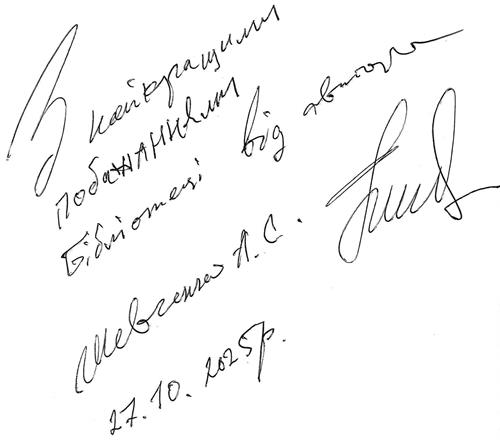 З найкращими
побажаннями
Бібліотеці від автора
Шевченко А. С.
27.10.2025р.